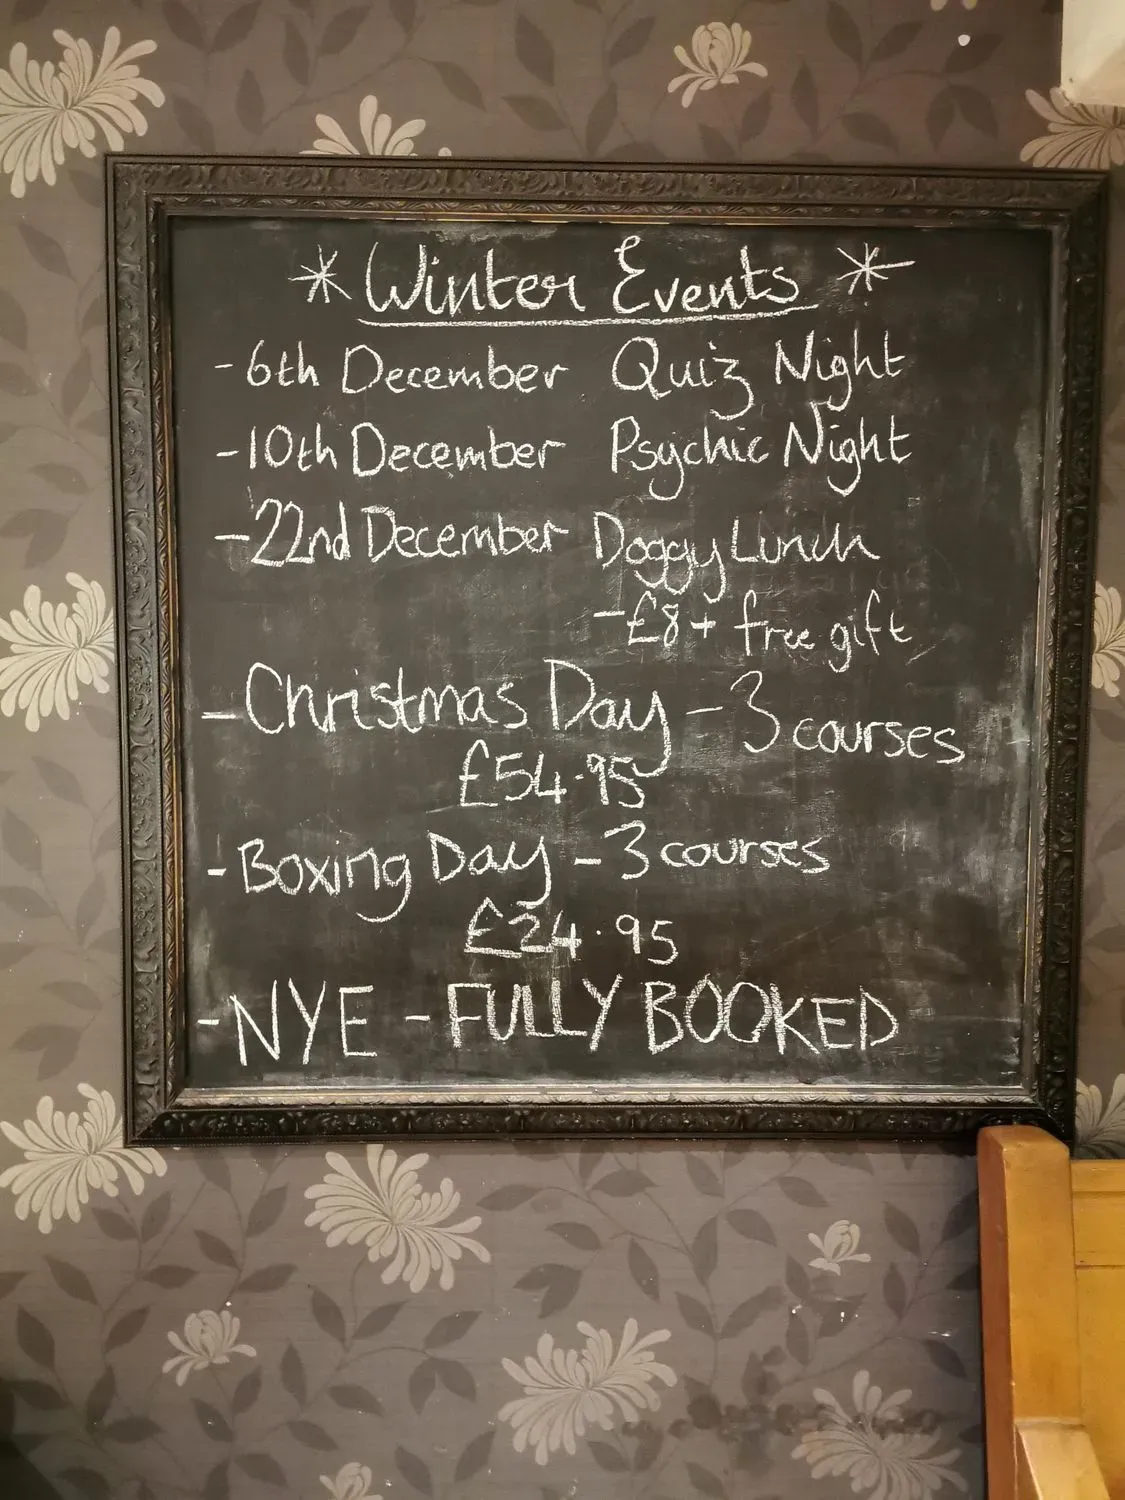 * Winter Events *
- 6th December Quiz Night
- 10th December Psychic Night
- 22nd December Doggy Lunch
- £8 + free gift
- Christmas Day - 3 courses
£54.95
- Boxing Day - 3 courses
£24.95
- NYE - FULLY BOOKED